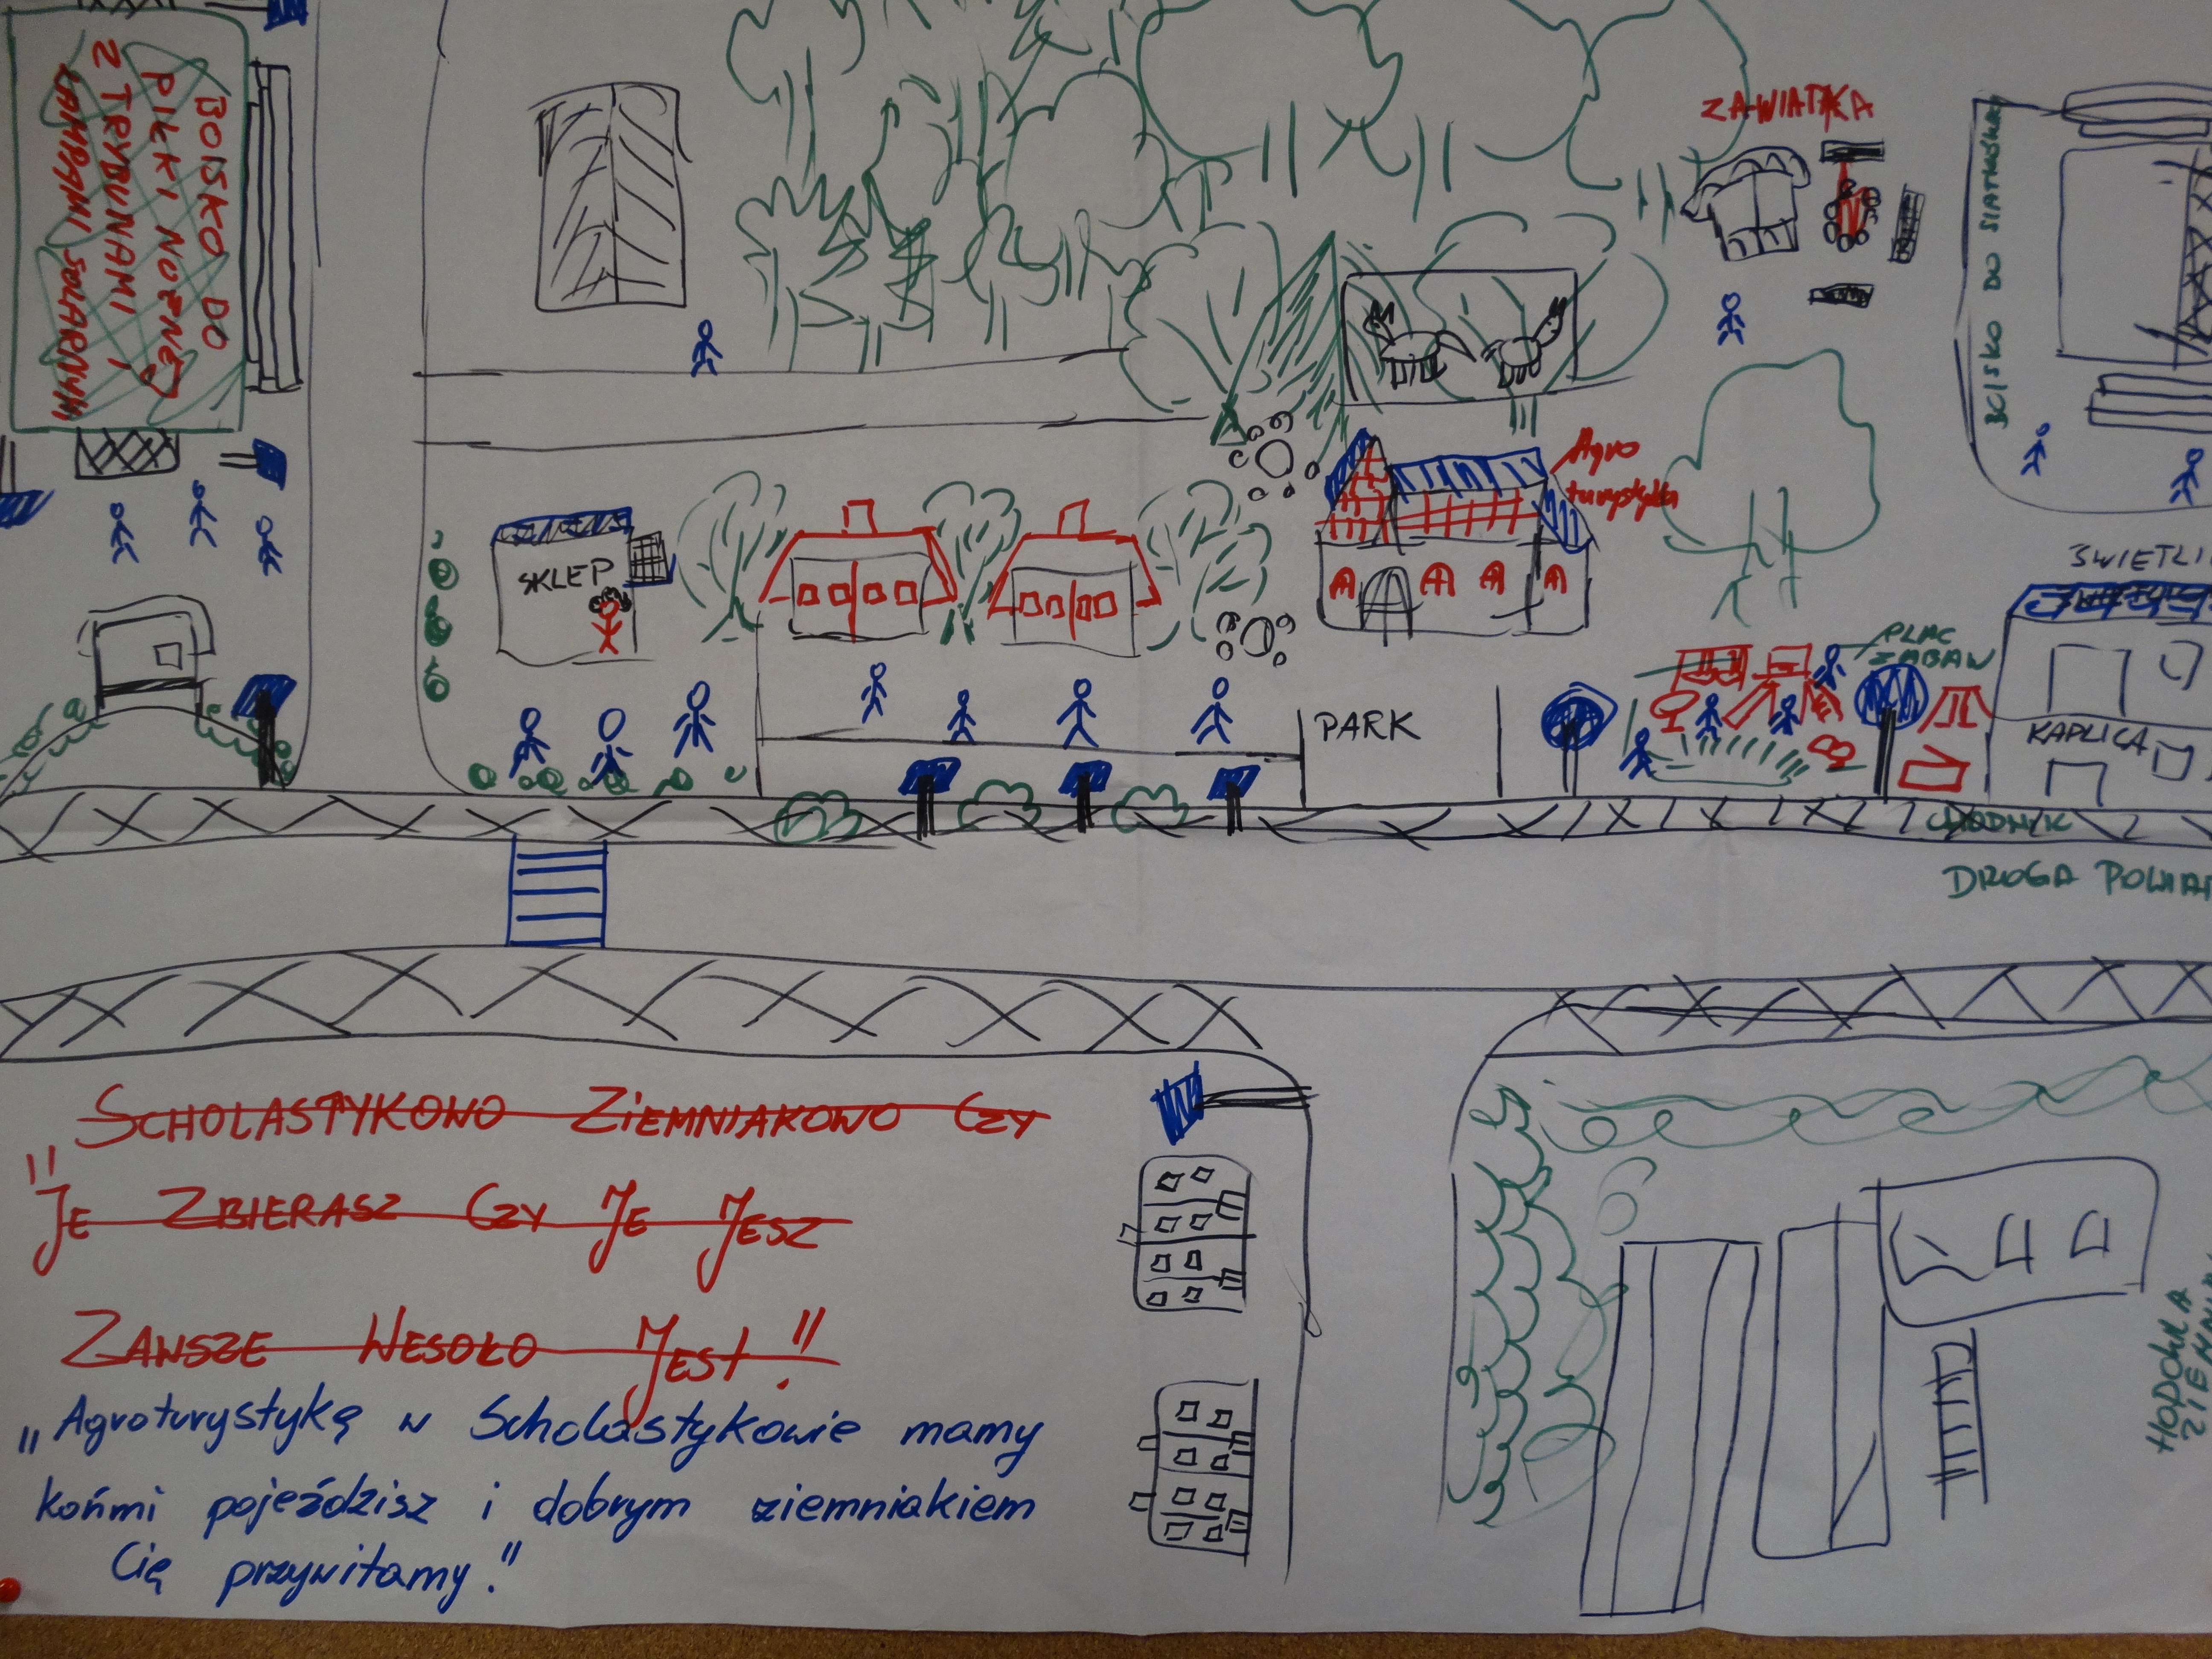 BOISKO DO
PIŁKI NOŻNEJ
Z TRYBUNAMI I
LAMPAMI SOLARNYMI
ZAWIATKA
BOISKO DO SIATKÓWKI
Agro
turystyka
SKLEP
ŚWIETLI
PLAC
ZABAW
PARK
KAPLICA
CHODNIK
DROGA POWIAT
SCHOLASTYKOWO ZIEMNIAKOWO CZY
"JE ZBIERASZ CZY JE JESZ
ZAWSZE WESOŁO JEST!"
„Agroturystykę w Scholastykowie mamy
końmi pojeździsz i dobrym ziemniakiem
Cię przywitamy."
HODOWLA